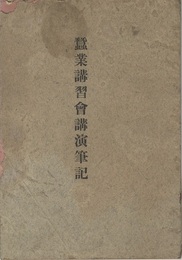 蠶業講習會講演筆記